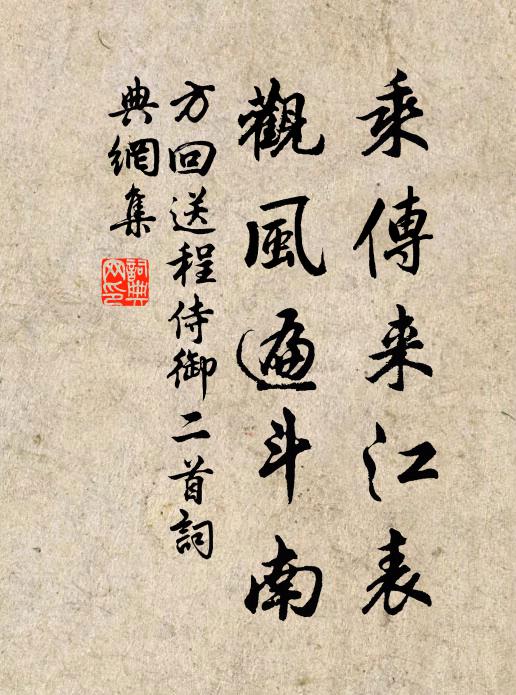 乘傳来江表
觀風遍斗南
方回送程侍御二首詞
典網集
詞典网印